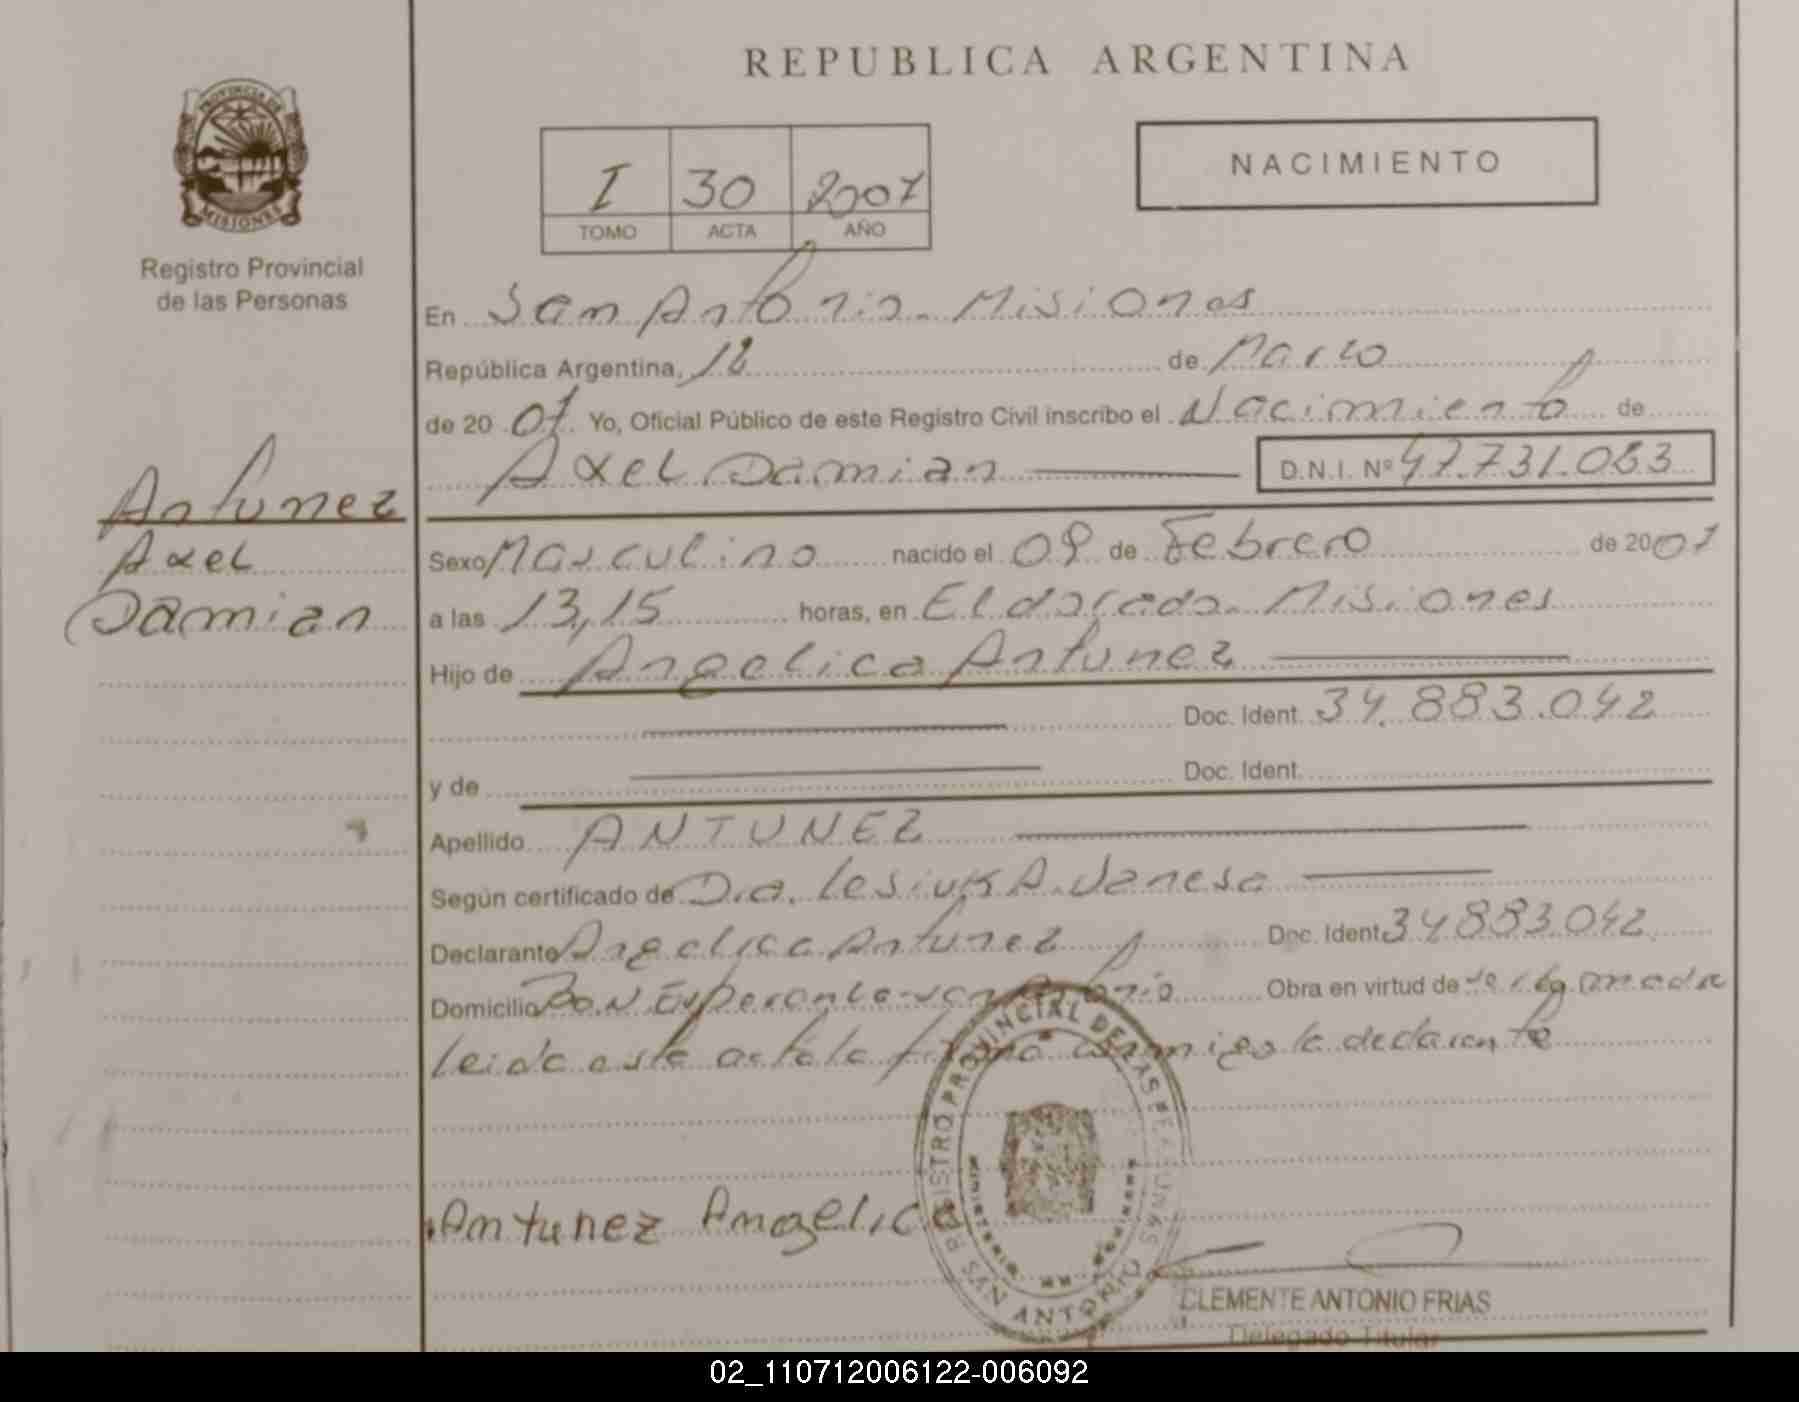 REPUBLICA ARGENTINA
PROVINCIA DE
MISIONES
Registro Provincial
de las Personas
I 30 2007
TOMO ACTA AÑO
NACIMIENTO
En San Antonio. Misiones
República Argentina, 12 de Marzo
de 20 07 Yo, Oficial Público de este Registro Civil inscribo el Nacimiento de
Axel Damian D.N.I. Nº 47.731.083
Antunez
Axel
Damian
Sexo Masculino nacido el 09 de Febrero de 2007
a las 13,15 horas, en Eldorado. Misiones
Hijo de Angelica Antunez
Doc. Ident. 34.883.042
y de Doc. Ident.
Apellido ANTUNEZ
Según certificado de Dra. Lesiuk A. Vanesa
Declarante Angelica Antunez Doc. Ident. 34883042
Domicilio San Antonio Obra en virtud de
leida esta acta la firma conmigo la declarante
REGISTRO PROVINCIAL DE LAS PERSONAS
SAN ANTONIO
Antunez Angelica
CLEMENTE ANTONIO FRIAS
Delegado Titular
02_110712006122-006092